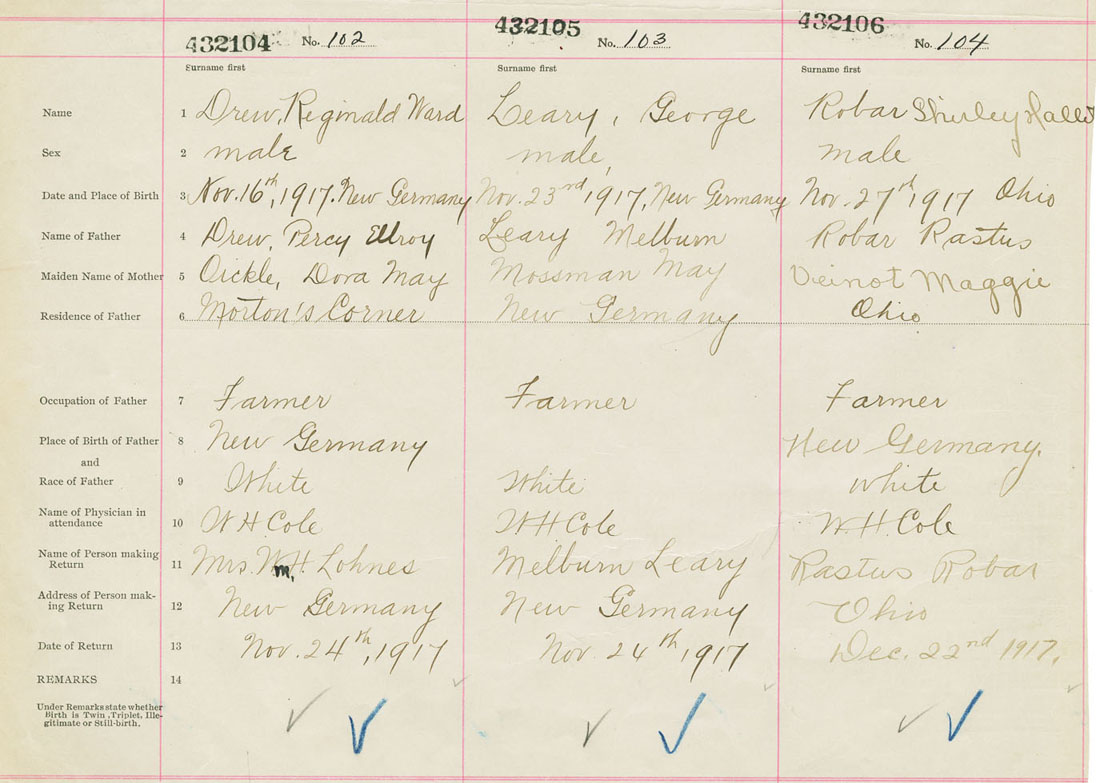 432104 No. 102 432105 No. 103 432106 No. 104
Surname first Surname first Surname first
Name 1 Drew, Reginald Ward Leary, George Robar Shirley
Sex 2 male male, male
Date and Place of Birth 3 Nov. 16th, 1917. New Germany Nov. 23rd 1917, New Germany Nov. 27th 1917 Ohio
Name of Father 4 Drew, Percy Ellroy Leary Melburn Robar Rastus
Maiden Name of Mother 5 Oickle, Dora May Mossman May Veinot Maggie
Residence of Father 6 Morton's Corner New Germany Ohio
Occupation of Father 7 Farmer Farmer Farmer
Place of Birth of Father 8 New Germany New Germany.
and
Race of Father 9 White White White
Name of Physician in
attendance 10 W H Cole W H Cole W. H. Cole
Name of Person making
Return 11 Mrs. Wm. H Lohnes Melburn Leary Rastus Robar
Address of Person mak-
ing Return 12 New Germany New Germany Ohio
Date of Return 13 Nov. 24th, 1917 Nov. 24th, 1917 Dec. 22nd 1917.
REMARKS 14
Under Remarks state whether
Birth is Twin, Triplet, Ille-
gitimate or Still-birth.